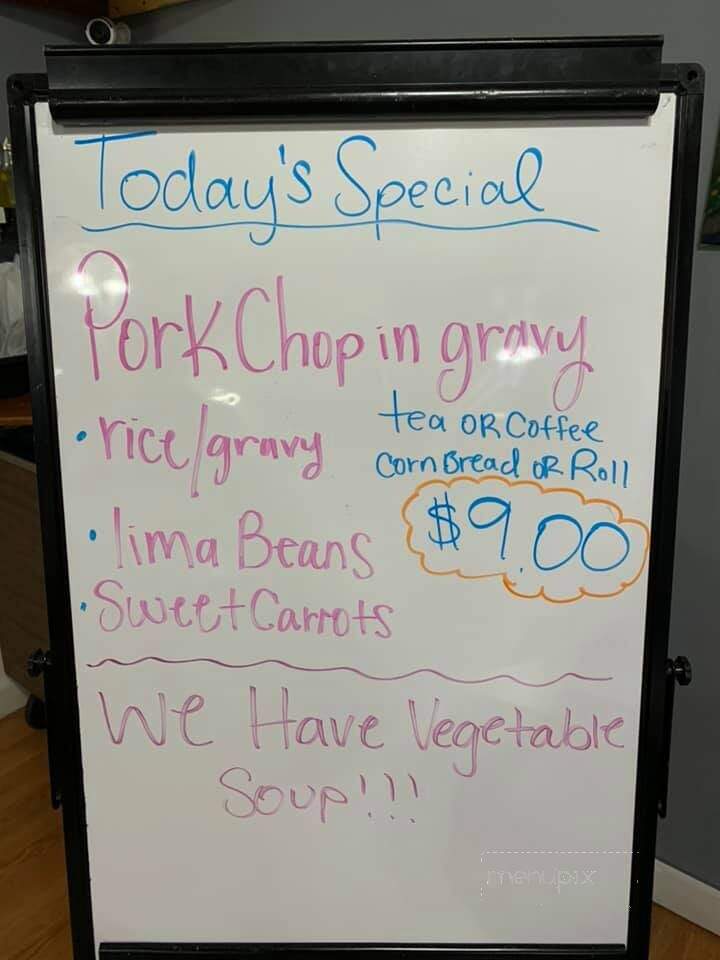 Today's Special
Pork Chop in gravy
• rice/gravy
tea OR Coffee
Corn Bread OR Roll
$9.00
• lima Beans
• Sweet Carrots
We Have Vegetable
Soup!!!
menupix